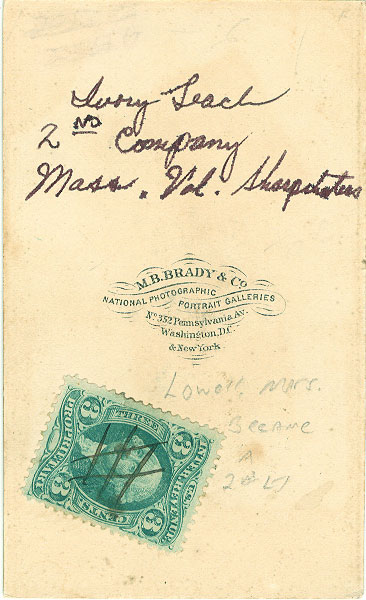 Ivory Leach
2 ND Company
Mass. Vol. Sharpshooters
M.B. BRADY & Co.
NATIONAL PHOTOGRAPHIC
PORTRAIT GALLERIES
No. 352 Pennsylvania Av.
Washington, D.C.
& New York
Lowell, Mass.
BECAME
A
2nd Lt
THREE
3 3
PROPRIETARY
CENTS
3 3